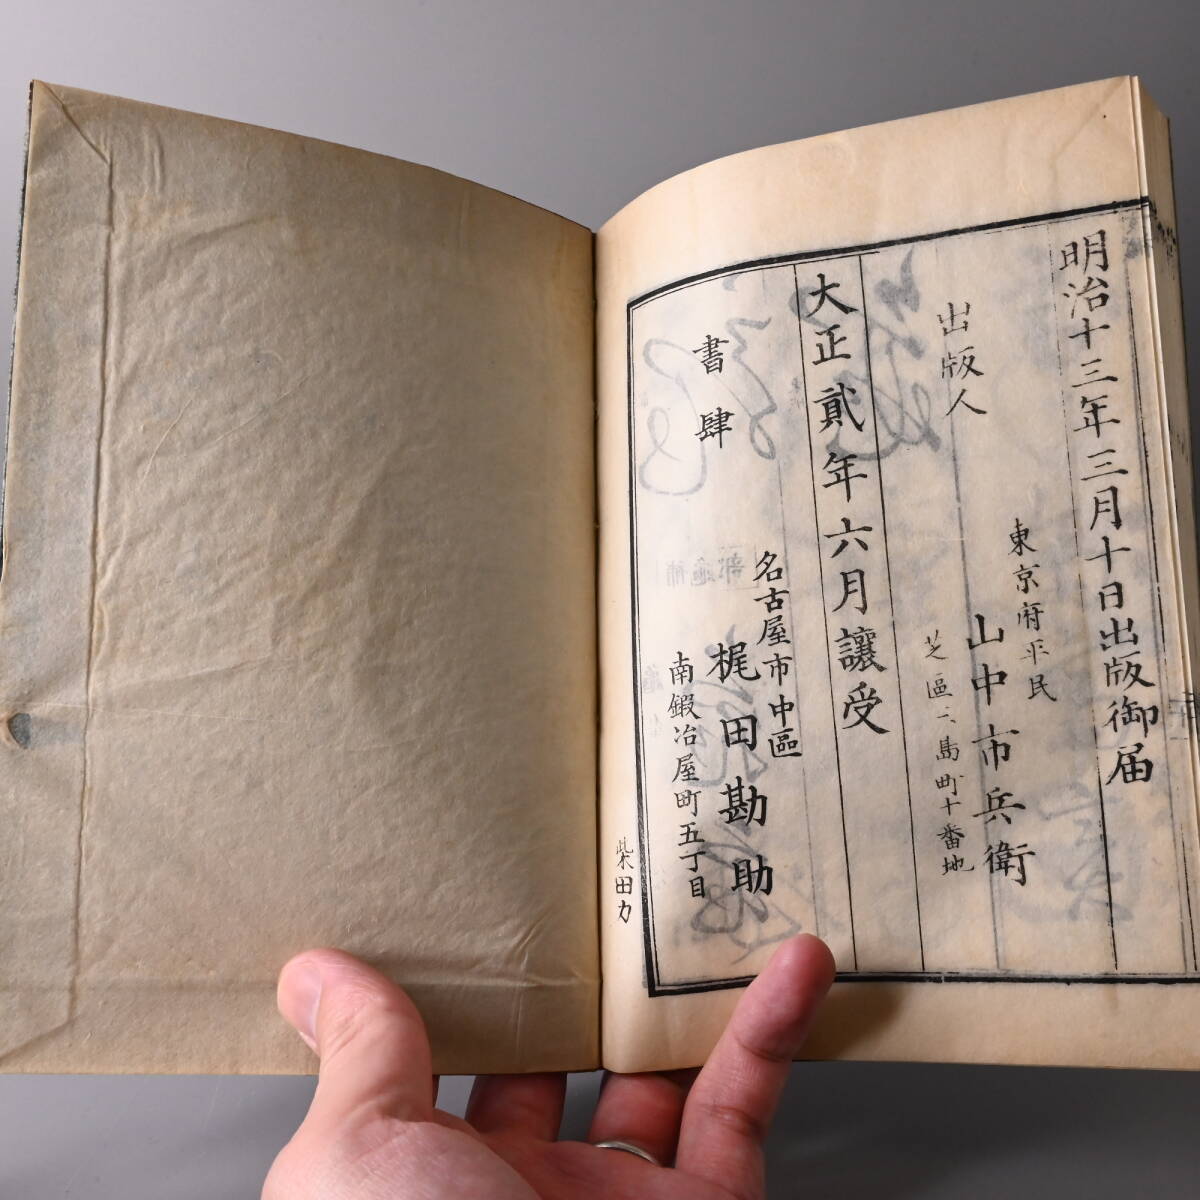 明治十三年三月十日出版御届
東京府平民
出版人 山中市兵衛
芝區三島町十番地
大正貳年六月讓受
名古屋市中區
書肆 梶田勘助
南鍛冶屋町五丁目
柴田力